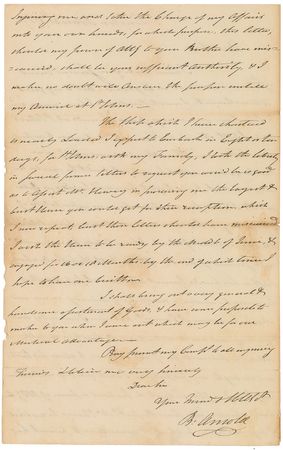 Injuring me and take the Charge of my Affairs
into your own hands, for which purpose, this letter,
should my power of Atty to your Brother have mis-
carried, shall be your sufficient Authority, & I
make no doubt will Answer the purpose untill
my Arrival at St Johns. —
The Ship which I have chartered
is nearly Loaded I expect to embark in Eight or ten
days, for St Johns with my Family, I took the liberty
in several former letters to request you would be so good
as to Assist Mr Henry in procuring me the Largest &
best House you could get for their reception, which
I now repeat, lest those letters should have miscarried
I wish the House to be ready by the Middle of June, &
engaged for 16 or 18 Months, by the end of which time I
hope to have one built —
I shall bring out a very general &
handsome assortment of Goods, & have some proposals to
make to you when I come out which may be for our
Mutual advantage —
Pray present my Compts to all enquiring
Friends, & believe me very sincerely
Dear Sir
Your Friend &
B. Arnold